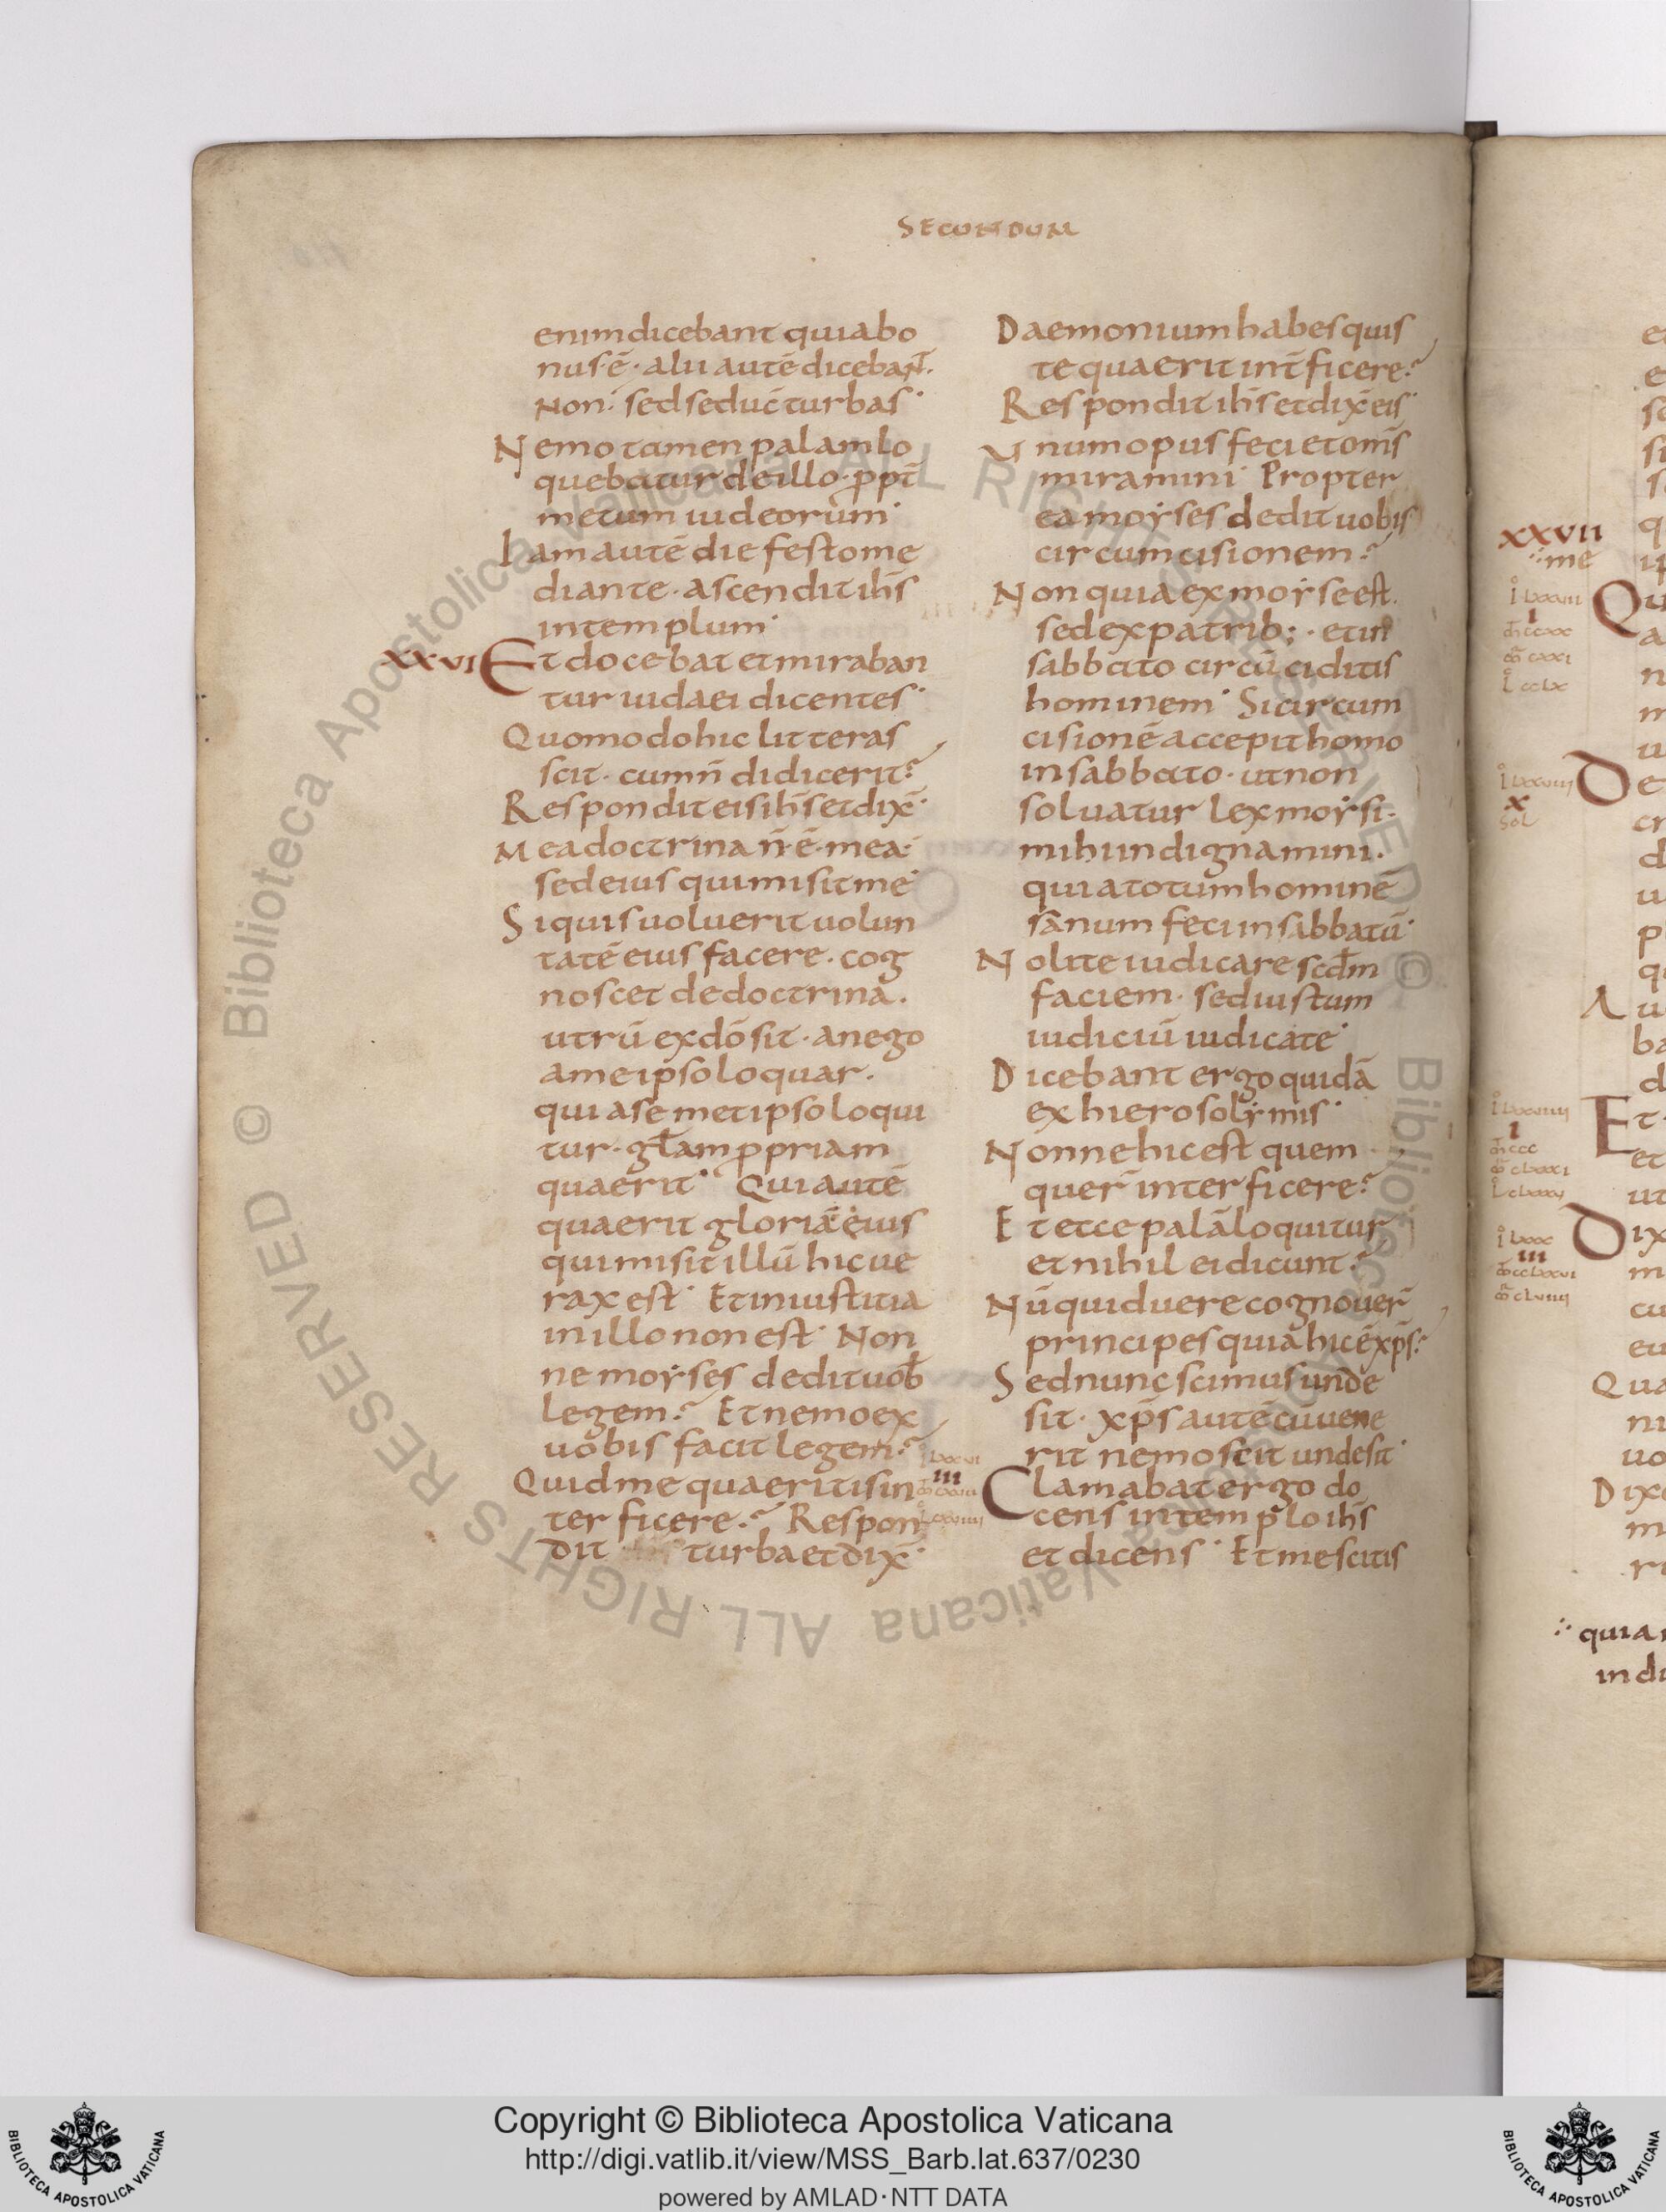 SECUNDUM
enim dicebant quia bo
nus ē · alii autē dicebant.
Non · sed seduc̄ turbas·
Nemo tamen palam lo
quebatur de illo · ꝓpt̄
metum iudeorum·
Iam autē die festo me
diante · ascendit ihs̄
in templum·
XXVI Et docebat et miraban
tur iudaei dicentes·
Quomodo hic litteras
scit · cum n̄ didicerit?
Respondit eis ihs̄ et dix̄·
Mea doctrina n̄ ē mea·
sed eius qui misit me·
Si quis voluerit volun
tatē eius facere · cog
noscet de doctrina.
utrū ex dō sit · an ego
a me ipso loquar.
qui a semetipso loqui
tur · głam ꝓpriam
quaerit· Qui autē
quaerit gloriā eius
qui misit illū hic ue
rax est· Et iniustitia
in illo non est· Non
ne moyses dedit uob̄
legem? Et nemo ex
uobis facit legem?
Quid me quaeritis in
terficere? Respon
dit turba et dix̄·
Daemonium habes quis
te quaerit int̄ficere?
Respondit ihs̄ et dix̄ eis·
Unum opus feci et om̄s
miramini· Propter
ea moyses dedit uobis
circumcisionem?
Non quia ex moyse est.
sed ex patrib; · et in
sabbato circū ciditis
hominem· Si circum
cisionē accepit homo
in sabbato · ut non
soluatur lex moysi·
mihi indignamini.
quia totum hominē
sanum feci in sabbatū·
Nolite iudicare scdm̄
faciem · sed iustum
iudiciū iudicate·
Dicebant ergo quidā
ex hierosolymis·
Nonne hic est quem
quer̄ interficere?
Et ecce palā loquitur
et nihil ei dicunt?
Nū quid uere cognouer̄
principes quia hic ē xp̄s?
Sed nunc scimus unde
sit · xp̄s autē cū uene
rit nemo scit unde sit·
III Clamabat ergo do
cens in templo ihs̄
et dicens· Et me scitis
XXVII
∴ me
I
X
sol
I
III
∴ quia
Copyright © Biblioteca Apostolica Vaticana
http://digi.vatlib.it/view/MSS_Barb.lat.637/0230
powered by AMLAD · NTT DATA
BIBLIOTECA APOSTOLICA VATICANA
BIBLIOTECA APOSTOLICA VATICANA
© Biblioteca Apostolica Vaticana ALL RIGHTS RESERVED
© Biblioteca Apostolica Vaticana ALL RIGHTS RESERVED